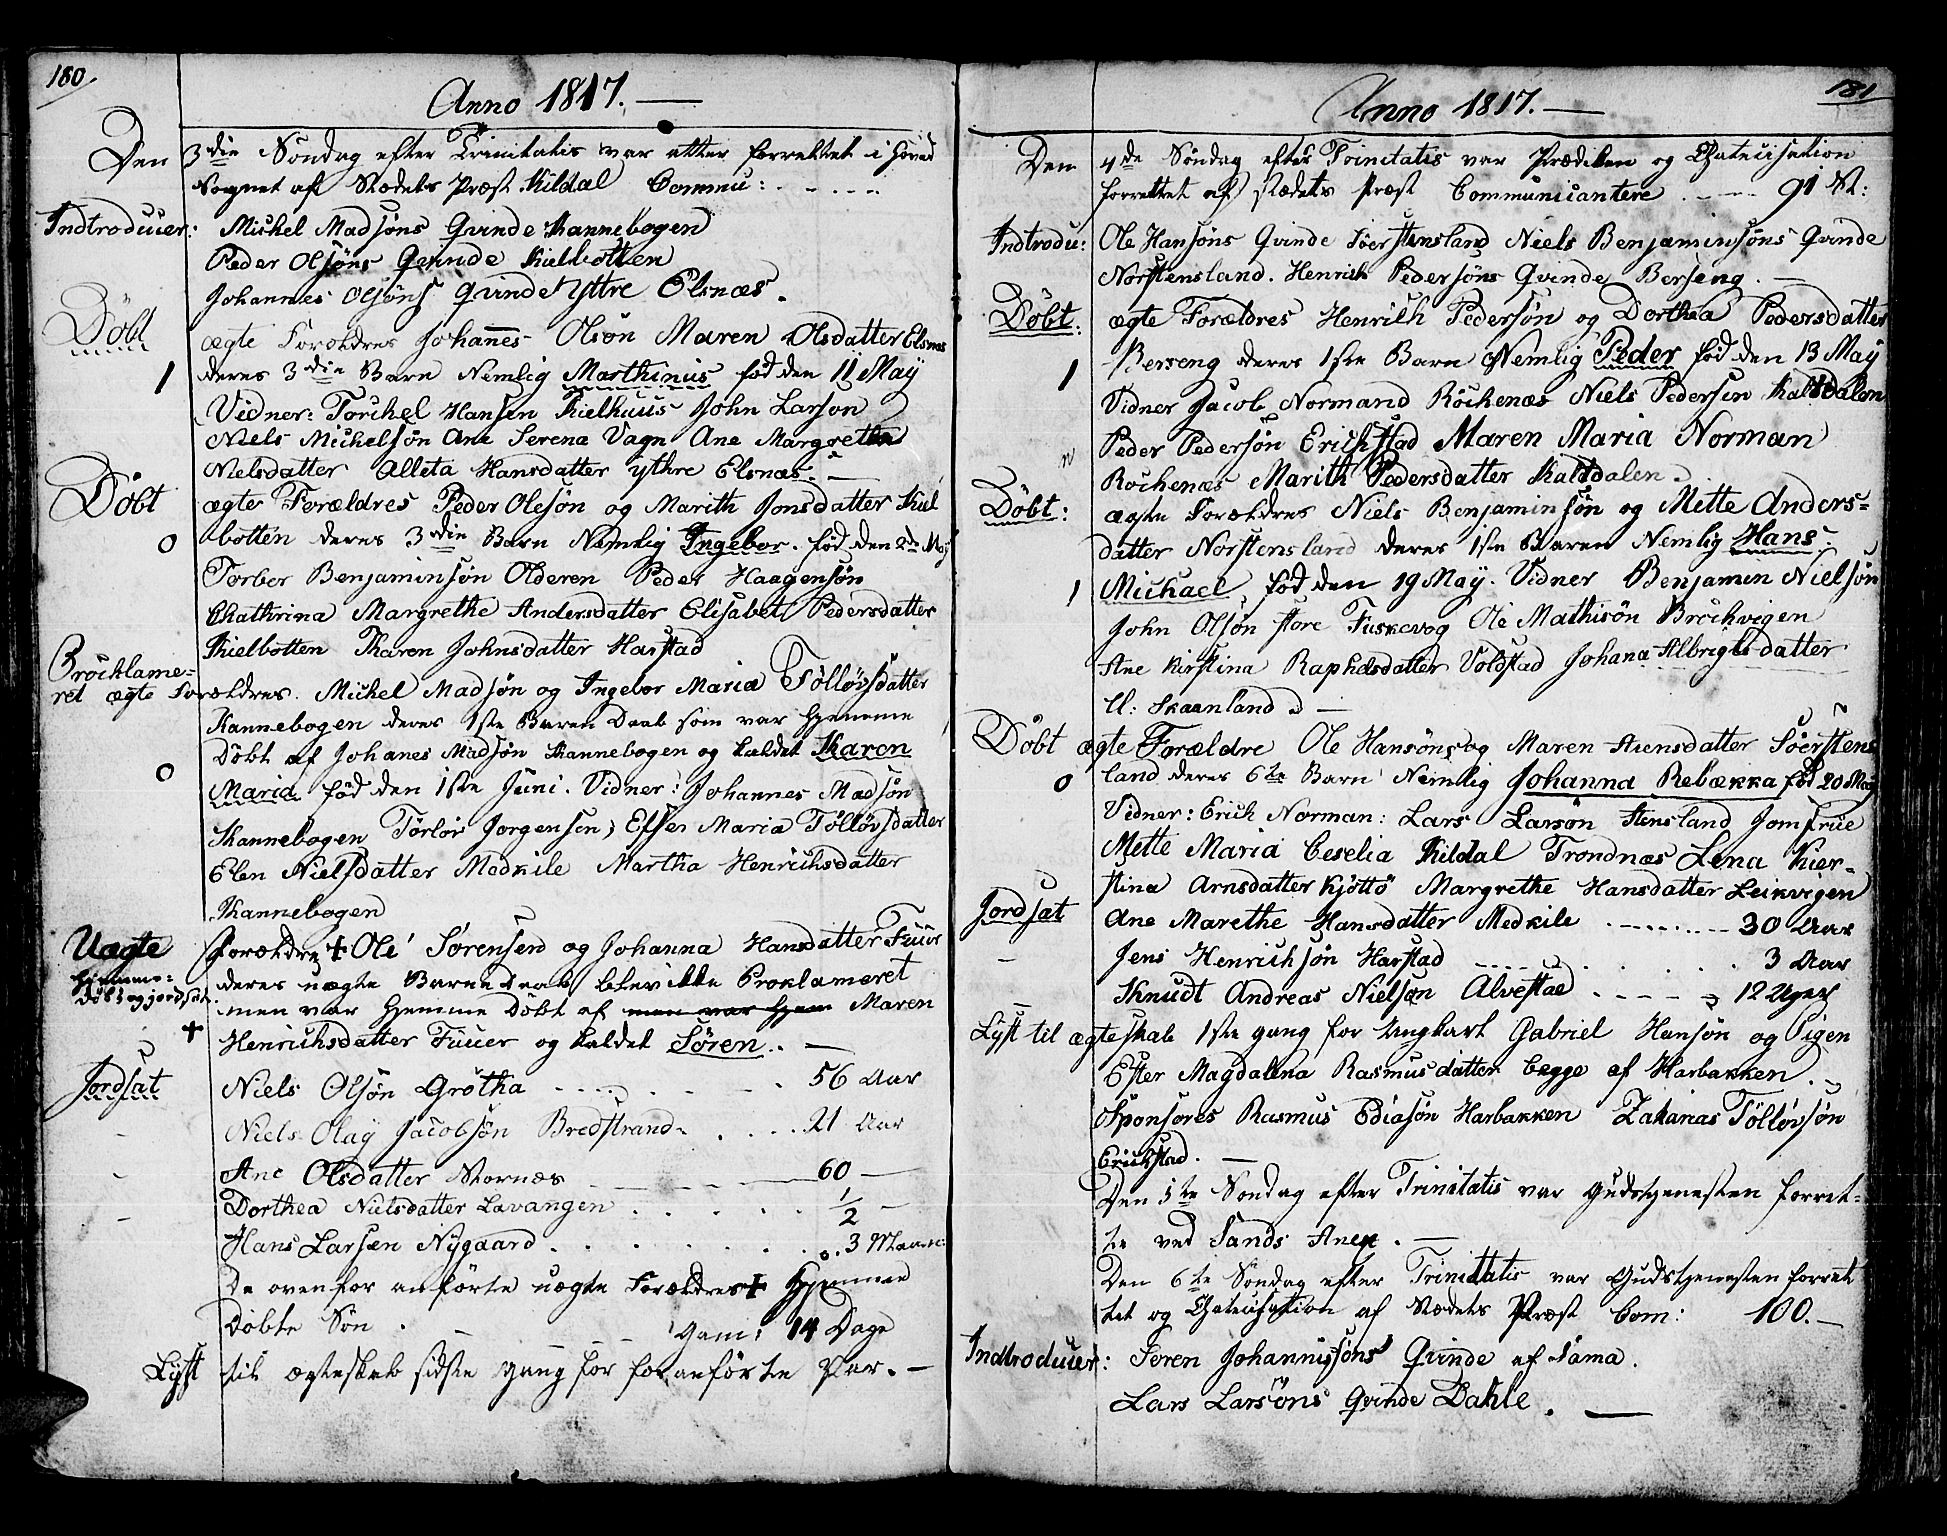 180
Anno 1817. —
Den 3die Söndag efter Trinitatis var atter forrettet i Hoved
Sognet af Stedets Præst Kildal Commu: - - - - -
Indtroducer: Michel Madsöns Qvinde Kannebogen
Peder Olsöns Qvinde Kielbotten
Johannes Olsöns Qvinde Yttre Elsnæs.
Döbt ægte Foreldres Johannes Olsön Maren Olsdatter Elsnæs
1 deres 3die Barn Nemlig Marthinus föd den 11 May
Vidner: Torchel Hansen Kielhuus John Larson
Niels Michelsön Ane Serena Vagn Ane Margrethe
Nielsdatter Alleta Hansdatter ythre Elsnæs. —
Döbt ægte Forældres Peder Olesön og Marith Jonsdatter Kiel
0 botten deres 3die Barn Nemlig Ingebor. föd den 2de May
Torber Benjaminsön Olderen Peder Haagensön
Chathrina Margrethe Andersdatter Elisabet Pedersdatter
Kielbotten Karen Johnsdatter Harstad
Pròcklame-
ret ægte Forældres. Michel Madsön og Ingebor Maria Töllövsdatter
Kannebogen deres 1ste Baren Daab som var hjemme
Döbt af Johanes Madsön Kannebogen og kaldet Karen
0 Maria föd den 1ste Juni. Vidner: Johannes Madsön
Kannebogen Törlör Jorgensen, Esther Maria Töllövsdatter
Elen Nielsdatter Medkile Martha Henrichsdatter
Kannebogen
Uægte Forældre + Ole Sørensen og Johanna Hansdatter Fuur
hjemme-
döbt og jordsat deres uægte Barne Daab blev ikke Proklameret
men var hjemme Döbt af men var hjem Maren
+ Henrichsdatter Fuuer og kaldet Sören. —
Jordsat Niels Olsön Grötha - - - - 56 Aar
Niels Olay Jacobsön Bredstrand - - - 21 Aar
Ane Olsdatter Stornæs - - - 60 —
Dorthea Nielsdatter Lavangen . . . . 1/2 —
Hans Larsen Nygaard . . . . . 3 Maan:
De ovenfor anförte uægte Forældres + Hjemme
Döbte Sön . — Gam: 14 Dage
Lyst til ægteskab sidste gang for foranförte Par. —
181
Anno 1817. —
Den 4de Söndag efter Trinitatis var Prædiken og Catecisation
forrettet af stedets Præst Communicantere - - - 91 St:
Indtrodu: Ole Hansöns Qvinde Söerstensland Niels Benjaminsöns Qvinde
Norstensland. Henrich Pedersöns Qvinde Berseng. —
Döbt: ægte Forældres Henrich Pedersön og Dorthea Pedersdatter
1 Berseng deres 1ste Barn Nemlig Peder föd den 13 May
Vidner Jacob Normand Röckenæs Niels Pedersen Kaldsdalen
Peder Pedersön Erichstad Maren Maria Norman
Röckenæs Marith Pedersdatter Kaltdalen.
Döbt: ægte Forældres Niels Benjaminsön og Mette Anders-
datter Norstensland deres 1ste Baren Nemlig Hans
1 Michael, föd den 19 May. Vidner Benjamin Nielsön
John Olsön store Fuskevog Ole Mathisön Bröckvigen
Ane Kirstina Raphælsdatter Voldstad Johana Albrigtsdatter
U: Skaanland. —
Döbt ægte Forældre Ole Hansöns og Maren Aunsdatter Söerstens
0 land deres 6te Barn Nemlig Johanna Rebækka föd 20 May
Vidner: Erich Norman: Lars Larsön Stensland Jomfrue
Mette Maria Ceselia Kildal Trondnæs Lena Kier-
stina Arnsdatter Kjöttö Margrethe Hansdatter Leikvigen
Jordsat Ane Marethe Hansdatter Medkile - - - - 30 Aar
Jens Henrichsön Harstad - - - - 3 Aar
Knudt Andreas Nielsøn Alvestad - - - - 12 Uger
Lyst til ægteskab 1ste gang for Ungkarl Gabriel Hansön og Pigen
Ester Magdalena Rasmusdatter begge af Harbakken.
Sponsores Rasmus Ediasön Harbakken Zakarias Töllövsön
Erichstad. —
Den 5te Söndag efter Trinitatis var Gudstjenesten forret-
te ved Sands Anex. —
Den 6te Söndag efter Trinittatis var Gudstjenesten forret
tet og Catecisation af Stedets Præst Com: 100. —
Indtroducer: Seren Johannissöns Qvinde af Sama.
Lars Larsöns Qvinde Dahle. —